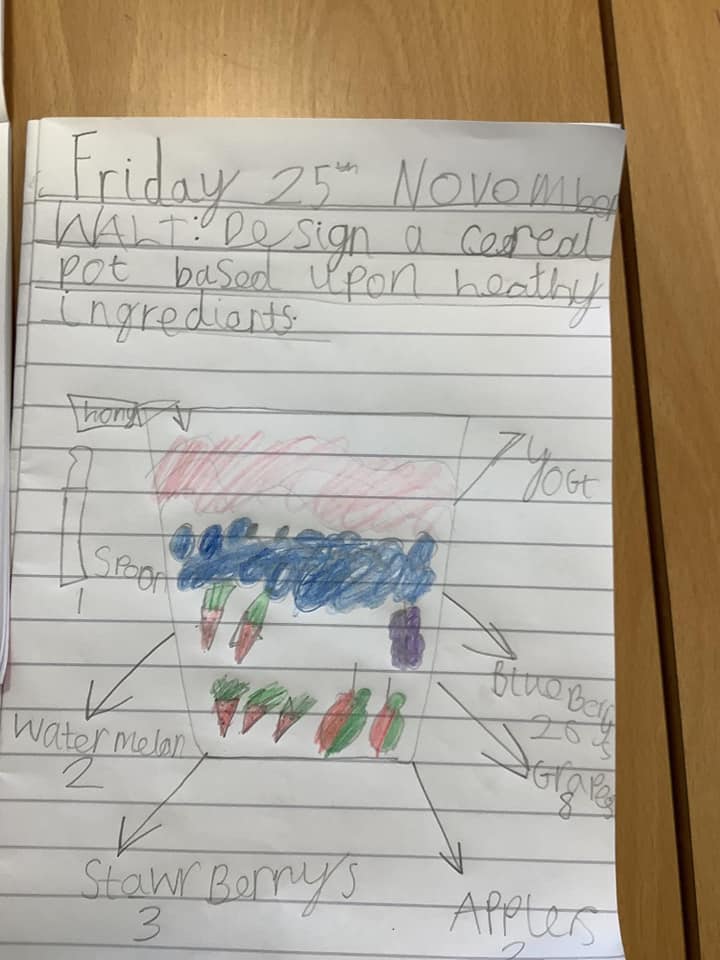 Friday 25th Novomber
WALT: Design a cereal
pot based upon heathy
ingredients.
hony
Yogt
Spoon
1
Blue Berry
20 s
Watermelon
2
Grapes
8
StawrBerrys
3
Applers
2